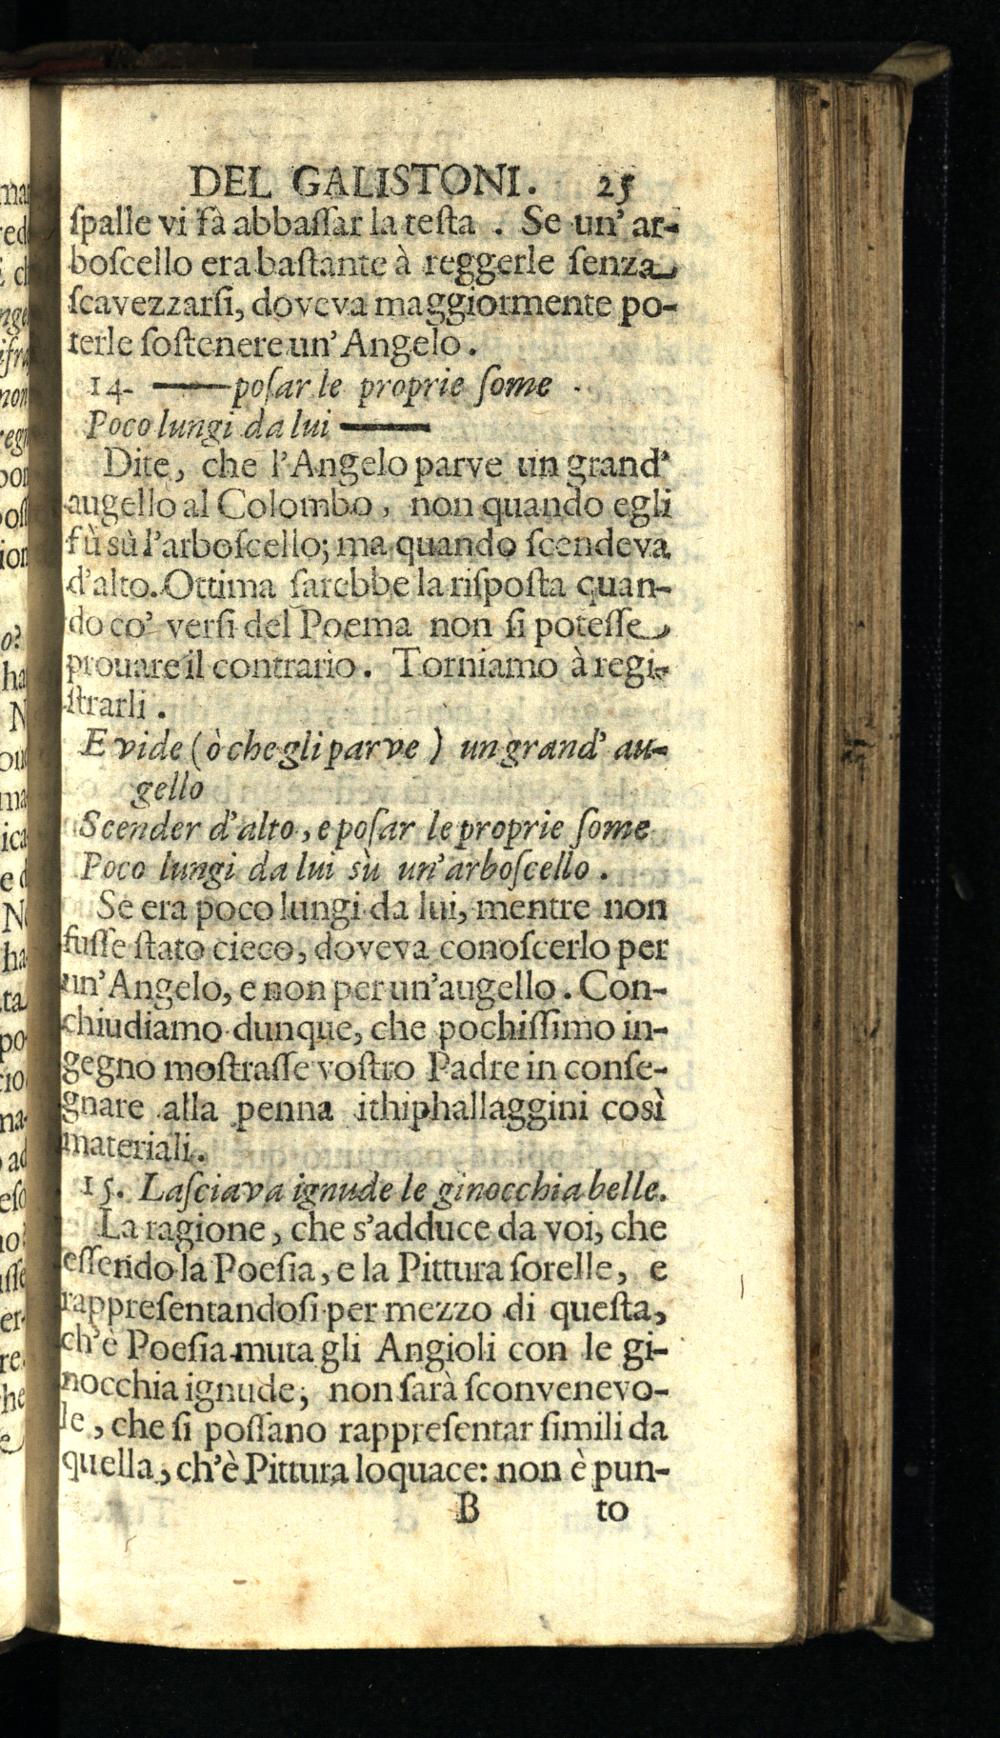 DEL GALISTONI. 25
ſpalle vi fà abbaſſar la teſta . Se un' ar-
boſcello era baſtante à reggerle ſenza
ſcavezzarſi, doveva maggiormente po-
terle ſoſtenere un' Angelo .
14- ——poſar le proprie ſome .
Poco lungi da lui ——
Dite, che l'Angelo parve un grand'
augello al Colombo , non quando egli
fù sù l'arboſcello; ma quando ſcendeva
d'alto. Ottima ſarebbe la riſpoſta quan-
do co' verſi del Poema non ſi poteſſe
prouare il contrario . Torniamo à regi-
ſtrarli .
E vide (ò che gli parve ) un grand' au-
gello
Scender d'alto , e poſar le proprie ſome
Poco lungi da lui sù un'arboſcello .
Se era poco lungi da lui, mentre non
fuſſe ſtato cieco, doveva conoſcerlo per
un'Angelo, e non per un'augello . Con-
chiudiamo dunque, che pochiſſimo in-
gegno moſtraſſe voſtro Padre in conſe-
gnare alla penna ithiphallaggini così
materiali.
15. Laſciava ignude le ginocchia belle.
La ragione , che s'adduce da voi, che
eſſendo la Poeſia , e la Pittura ſorelle, e
rappreſentandoſi per mezzo di queſta,
ch'è Poeſia muta gli Angioli con le gi-
nocchia ignude; non ſarà ſconvenevo-
le , che ſi poſſano rappreſentar ſimili da
quella, ch'è Pittura loquace: non è pun-
B to